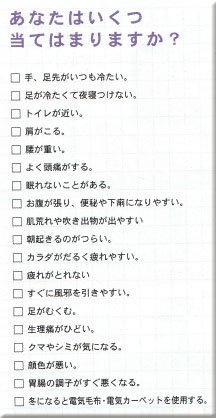 あなたはいくつ
当てはまりますか？
□ 手、足先がいつも冷たい。
□ 足が冷たくて夜寝つけない。
□ トイレが近い。
□ 肩がこる。
□ 腰が重い。
□ よく頭痛がする。
□ 眠れないことがある。
□ お腹が張り、便秘や下痢になりやすい。
□ 肌荒れや吹き出物が出やすい
□ 朝起きるのがつらい。
□ カラダがだるく疲れやすい。
□ 疲れがとれない
□ すぐに風邪を引きやすい。
□ 足がむくむ。
□ 生理痛がひどい。
□ クマやシミが気になる。
□ 顔色が悪い。
□ 胃腸の調子がすぐ悪くなる。
□ 冬になると電気毛布・電気カーペットを使用する。